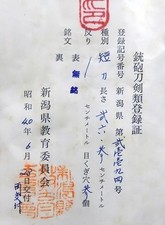 銃砲刀剣類登録証
登録記号番号 新潟県 第弐壱壱九四号
種別 短刀
長さ 弐六・参 センチメートル
反り センチメートル
目くぎ穴 参個
銘文 表 無銘
裏
昭和40年6月 日交付
新潟県教育委員会
再交付